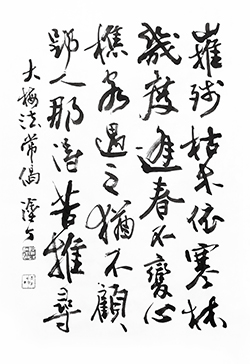 摧殘枯木依寒林
幾度逢春不變心
樵客遇之猶不顧
郢人那得苦推尋
大梅法常偈